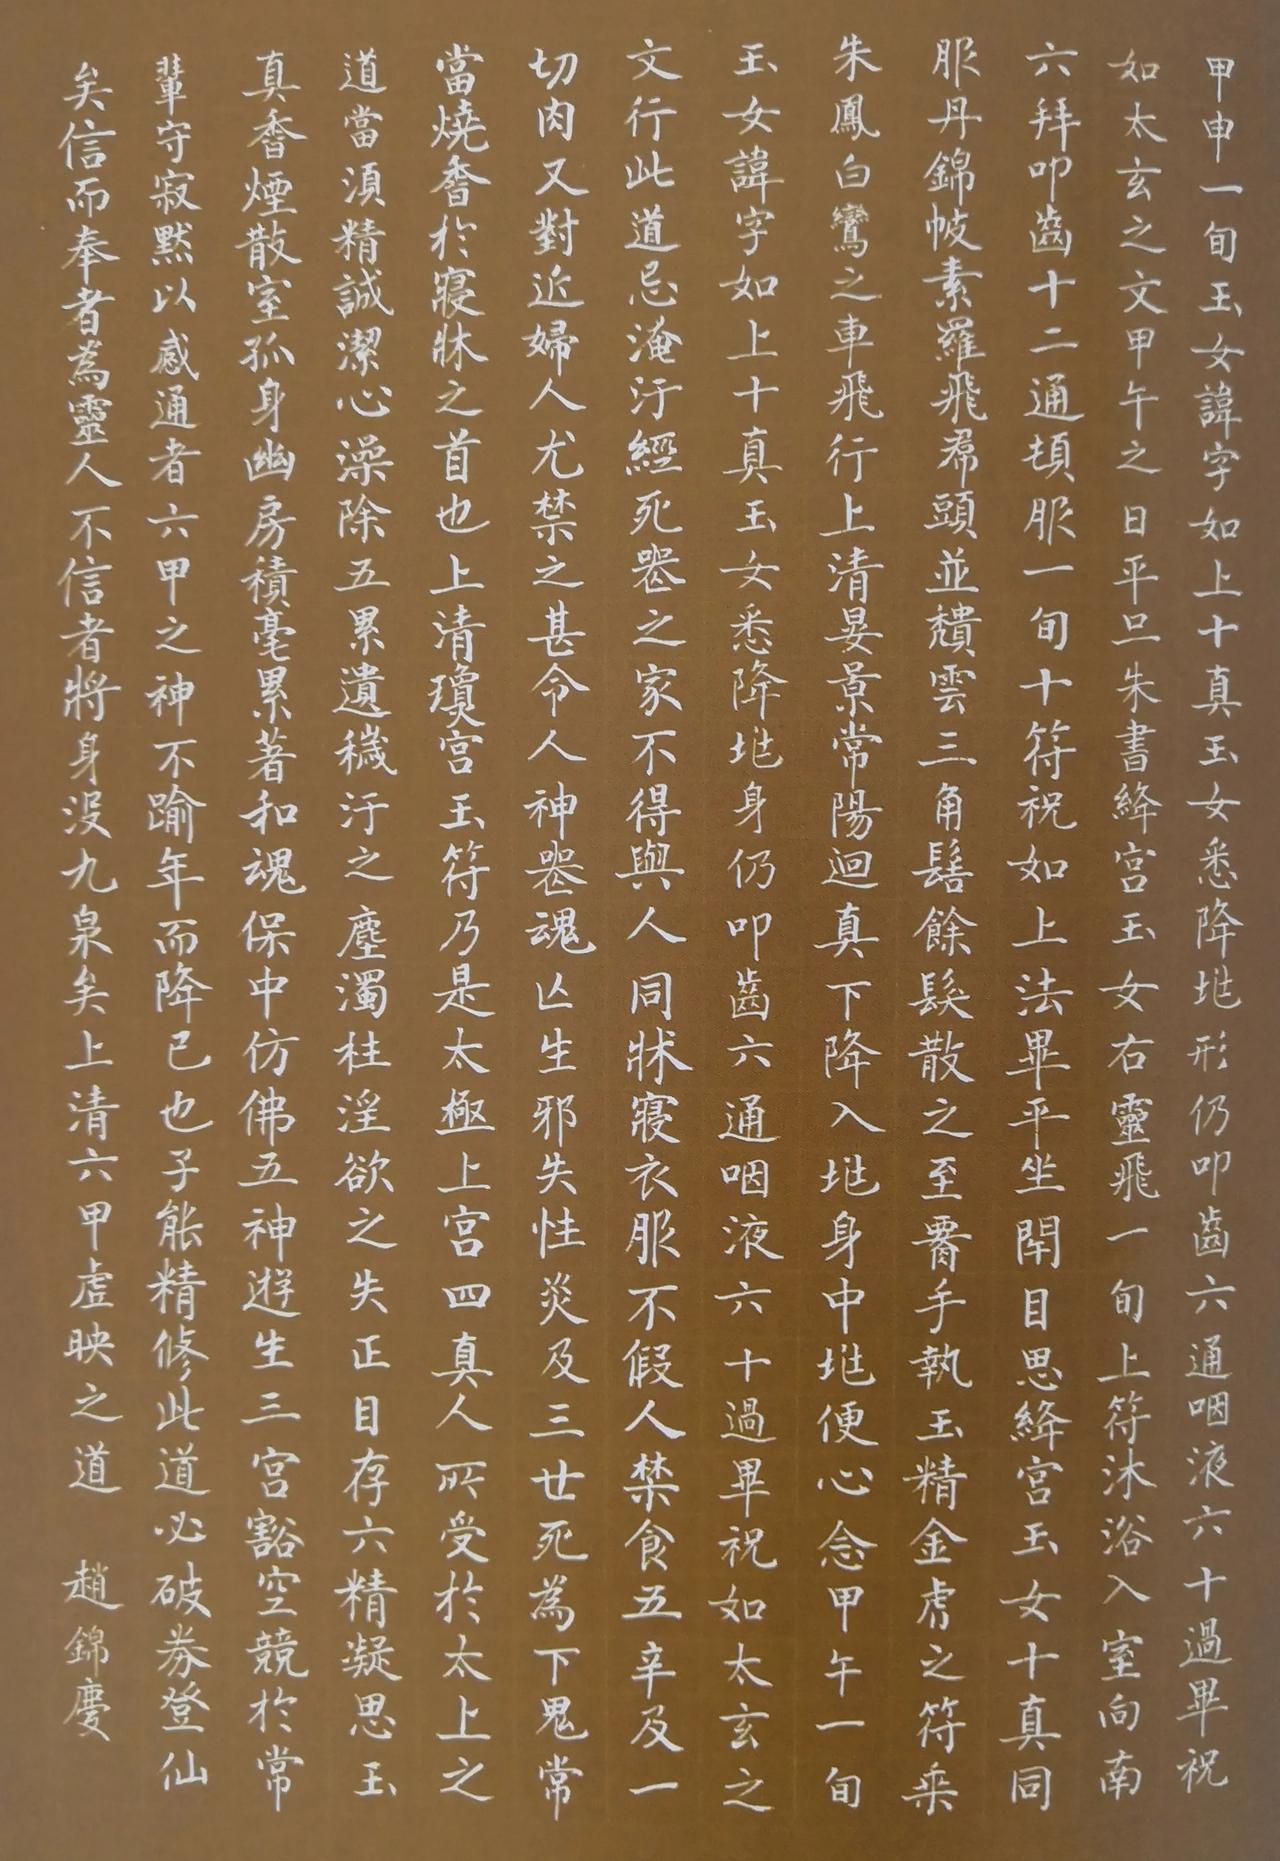 甲申一旬玉女諱字如上十真玉女悉降地形仍叩齒六通咽液六十過畢祝
如太玄之文甲午之日平旦朱書絳宮玉女右靈飛一旬上符沐浴入室向南
六拜叩齒十二通頓服一旬十符祝如上法畢平坐閉目思絳宮玉女十真同
服丹錦帔素羅飛帬頭並穨雲三角髻餘髮散之至署手執玉精金虎之符乘
朱鳳白鸞之車飛行上清晏景常陽迴真下降入地身中地便心念甲午一旬
玉女諱字如上十真玉女悉降地身仍叩齒六通咽液六十過畢祝如太玄之
文行此道忌淹汙經死喪之家不得與人同牀寢衣服不假人禁食五辛及一
切肉又對近婦人尤禁之甚令人神喪魂亡生邪失性災及三世死為下鬼常
當燒香於寢牀之首也上清瓊宮玉符乃是太極上宮四真人所受於太上之
道當須精誠潔心澡除五累遺穢汙之塵濁杜淫欲之失正目存六精凝思玉
真香煙散室孤身幽房積毫累著和魂保中仿佛五神遊生三宮豁空競於常
輩守寂默以感通者六甲之神不踰年而降已也子能精修此道必破券登仙
矣信而奉者為靈人不信者將身沒九泉矣上清六甲虛映之道 趙錦慶